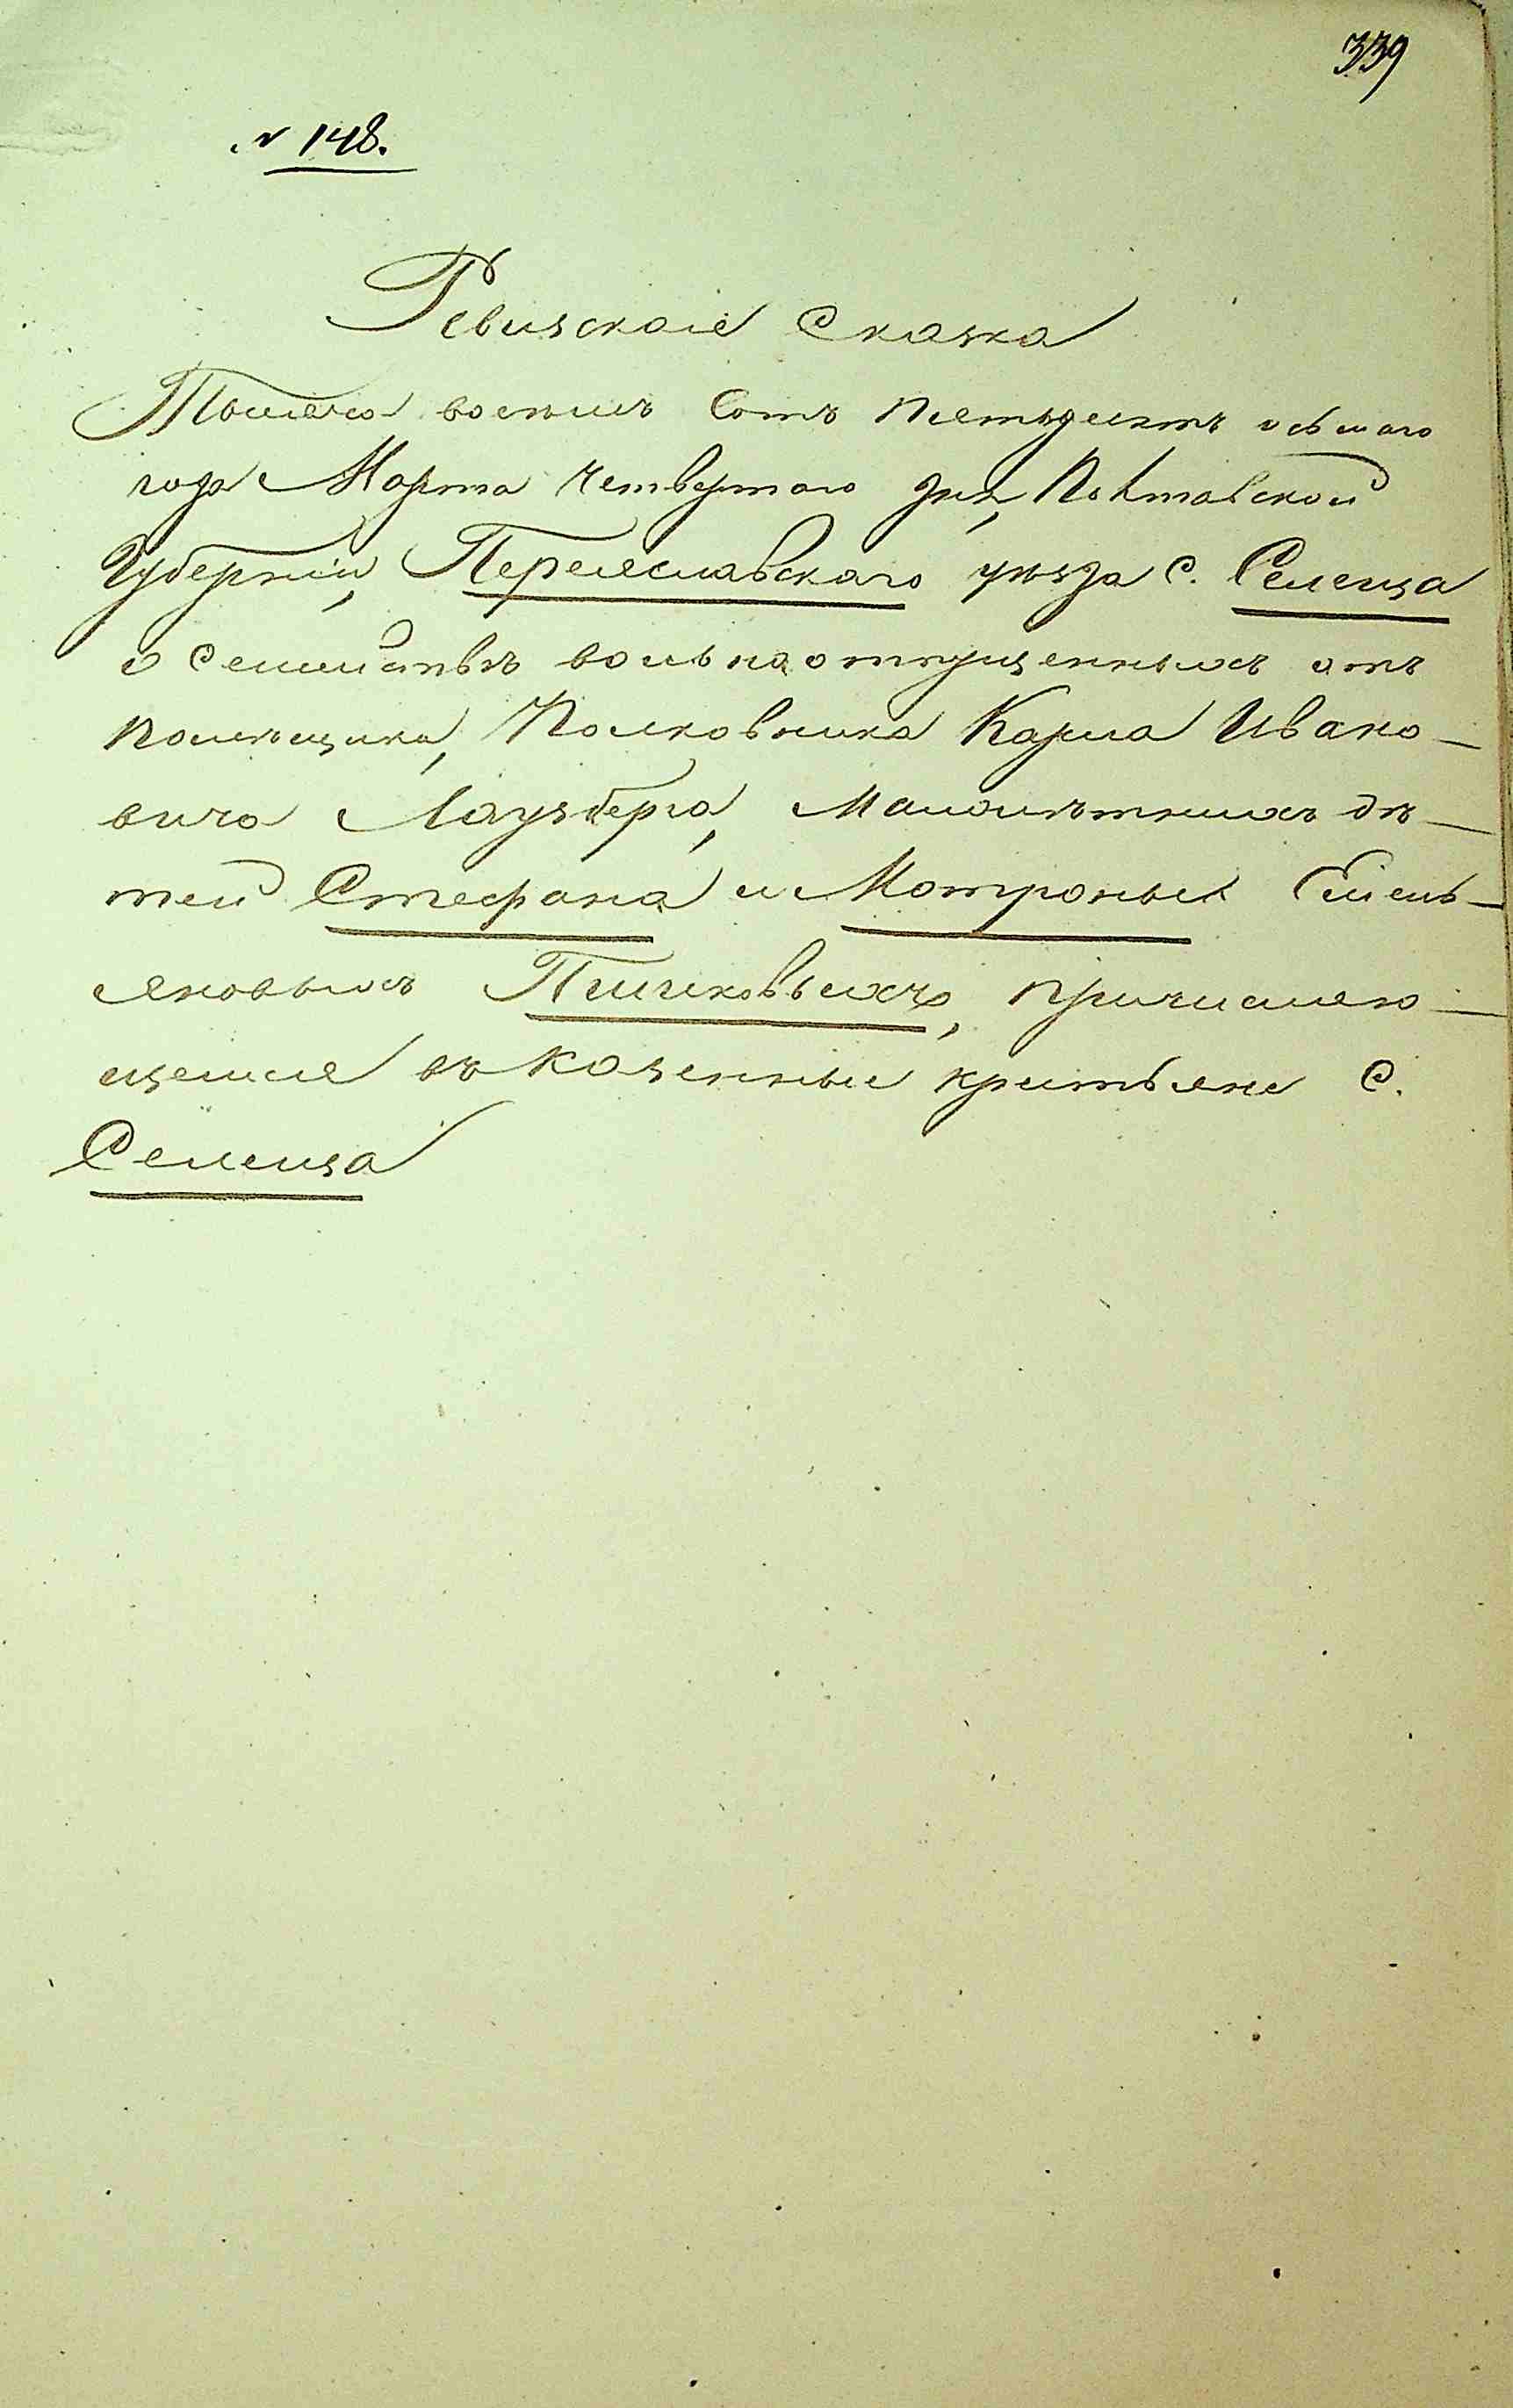 339
№ 148.
Ревизская Сказка
Тысяча восемь Сотъ Пятьдесятъ осьмаго
года Марта Четвертаго дня, Полтавской
Губерніи, Переяславскаго уѣзда С. Селенца
о Семействѣ вольноотпущенныхъ отъ
Помѣщика, Полковника Карла Ивано-
вича Лаузберга, Малолѣтнихъ дѣ-
тей Стефана и Мотроны Емель-
яновыхъ причисляю-
щемся въ Казенные крестьяне С.
Селенца